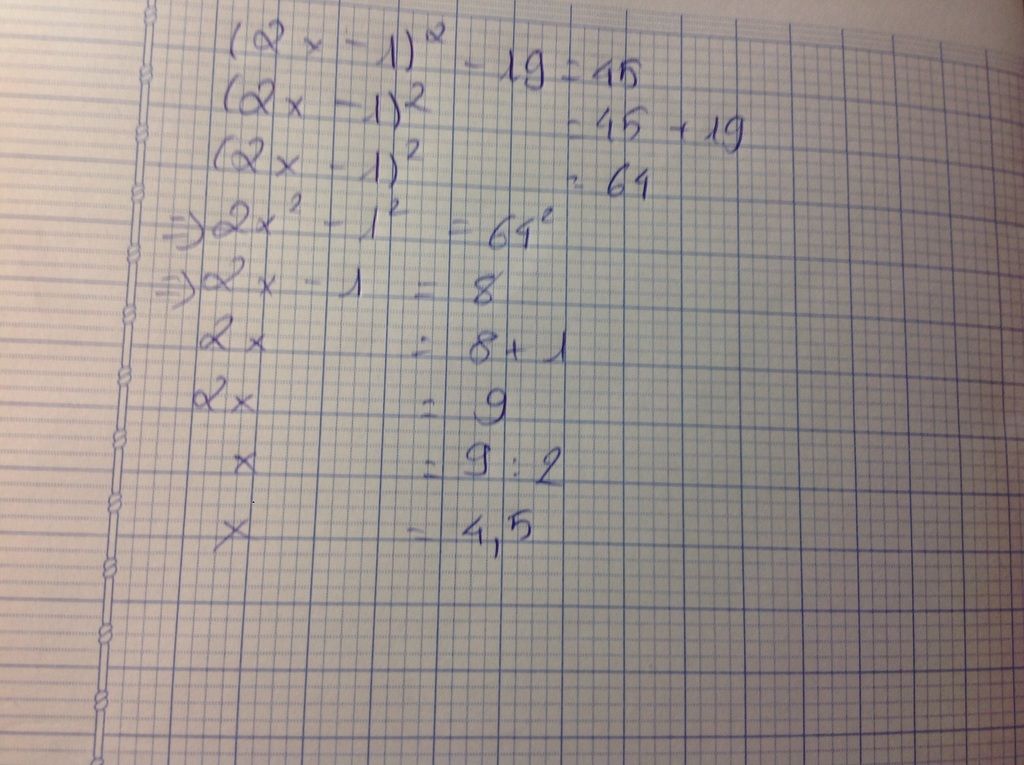 (2x - 1)² - 19 = 45
(2x - 1)² = 45 + 19
(2x - 1)² = 64
⇒ 2x² - 1² = 64²
⇒ 2x - 1 = 8
2x = 8 + 1
2x = 9
x = 9 : 2
x = 4,5